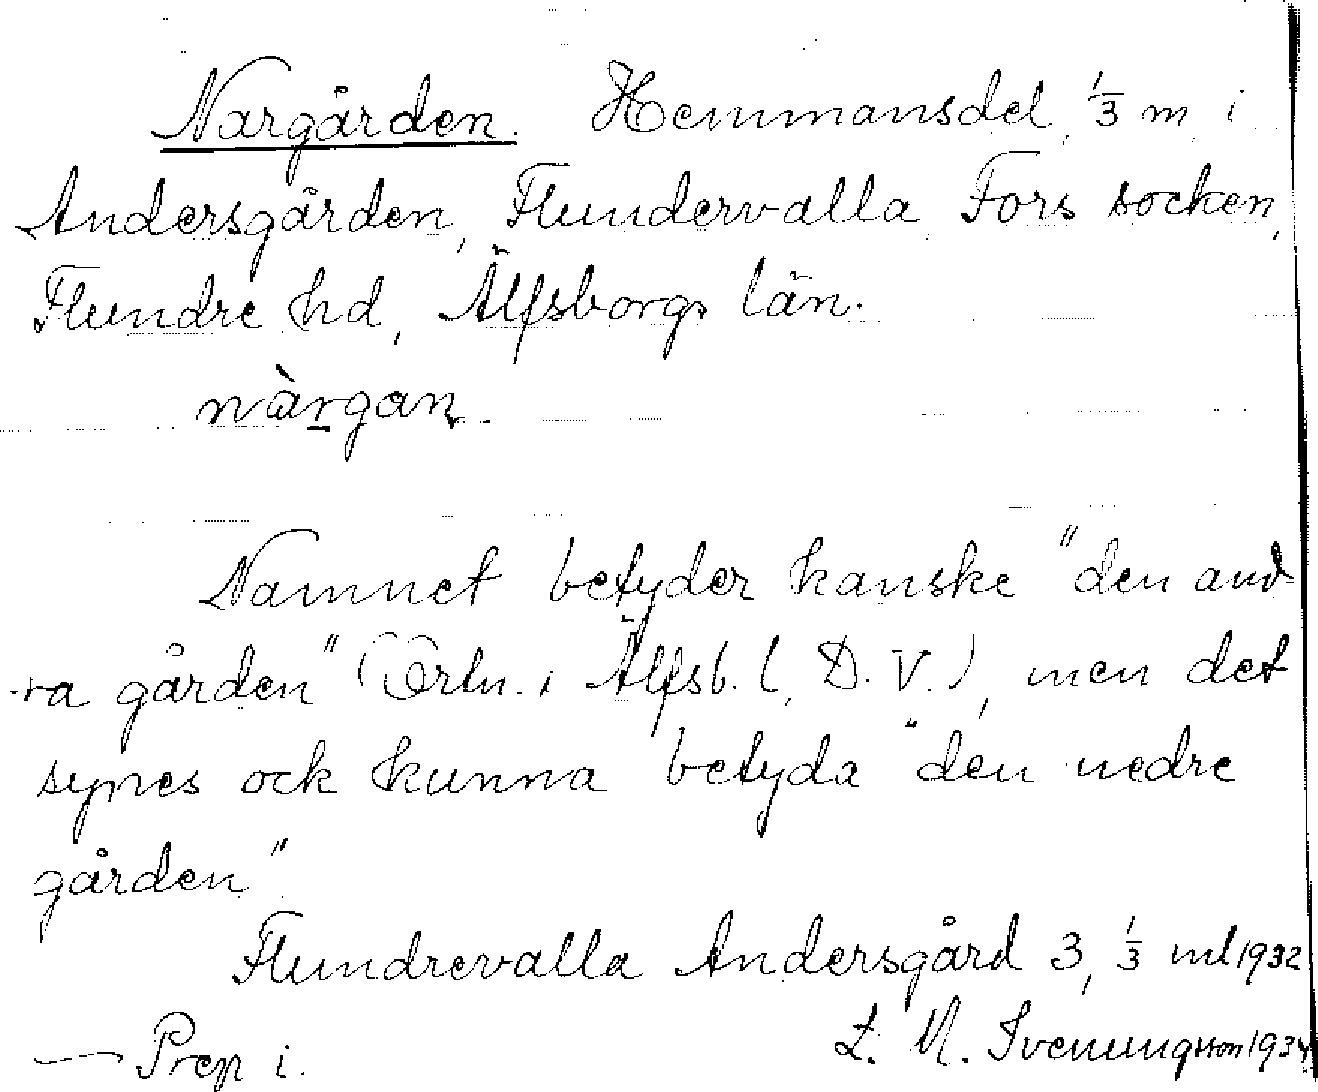 Nargården. Hemmansdel, 1/3 m, i
Andersgården, Flundervalla, Fors socken,
Flundre hd, Älfsborgs län.
nàrgan.
Namnet betyder kanske "den and-
-ra gården" (Ortn. i Älfsb. l, D. V.), men det
synes ock kunna betyda "den nedre
gården".
Flundrevalla Andersgård 3, 1/3 mtl 1932
— Prep i.
L. M. Svenungsson 1934